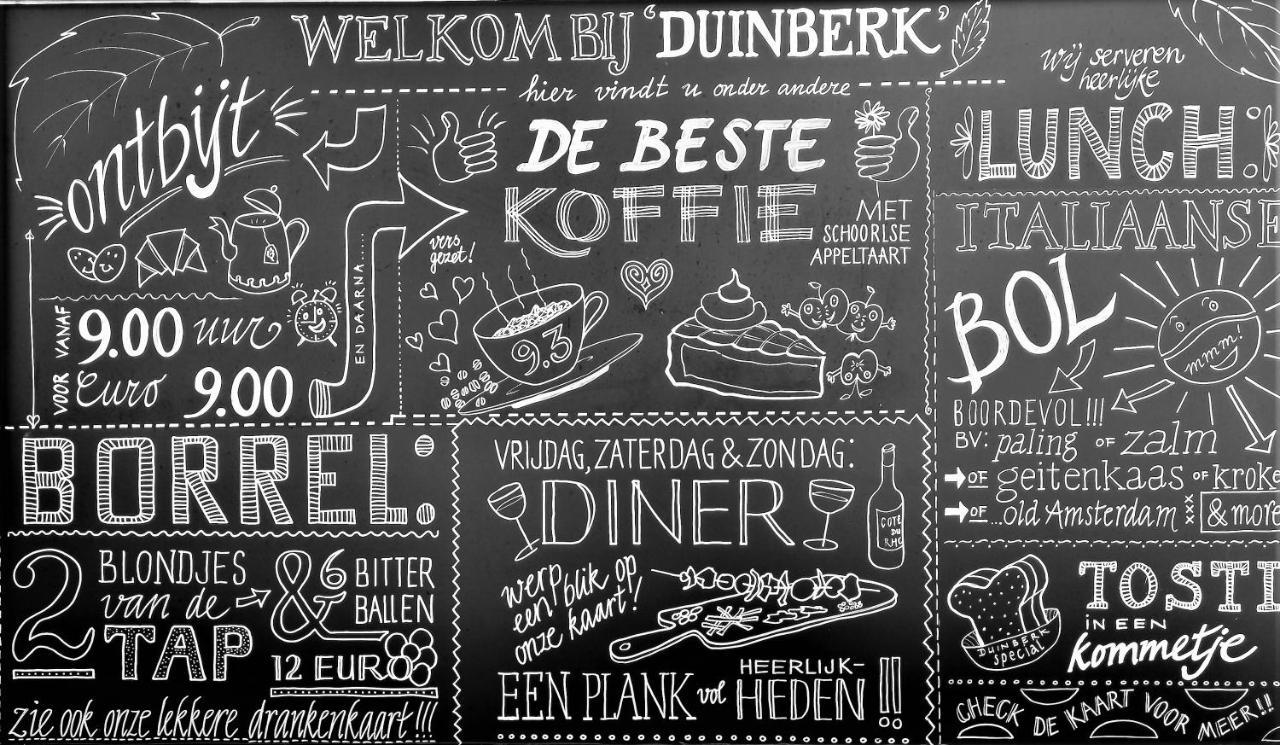 WELKOM BIJ 'DUINBERK'
hier vindt u onder andere
ontbijt
VOOR VANAF
9.00 uur
Euro 9.00
EN DAARNA.....
DE BESTE
KOFFIE
MET
SCHOORLSE
APPELTAART
vers
gezet!
9.3
wij serveren
heerlijke
LUNCH:
ITALIAANSE
BOL
mmm!
BOORDEVOL!!!
BV: paling OF zalm
OF geitenkaas OF kroke
OF ...old Amsterdam xxx & more
TOSTI
IN EEN
kommetje
DUINBERK
special
CHECK DE KAART VOOR MEER!!
BORREL:
2 BLONDJES
van de
TAP
& 6 BITTER
BALLEN
12 EURO
zie ook onze lekkere drankenkaart!!!
VRIJDAG, ZATERDAG & ZONDAG:
DINER
COTE
DU
RHC
werp blik op
een
onze kaart!!
EEN PLANK vol HEERLIJK-
HEDEN!!